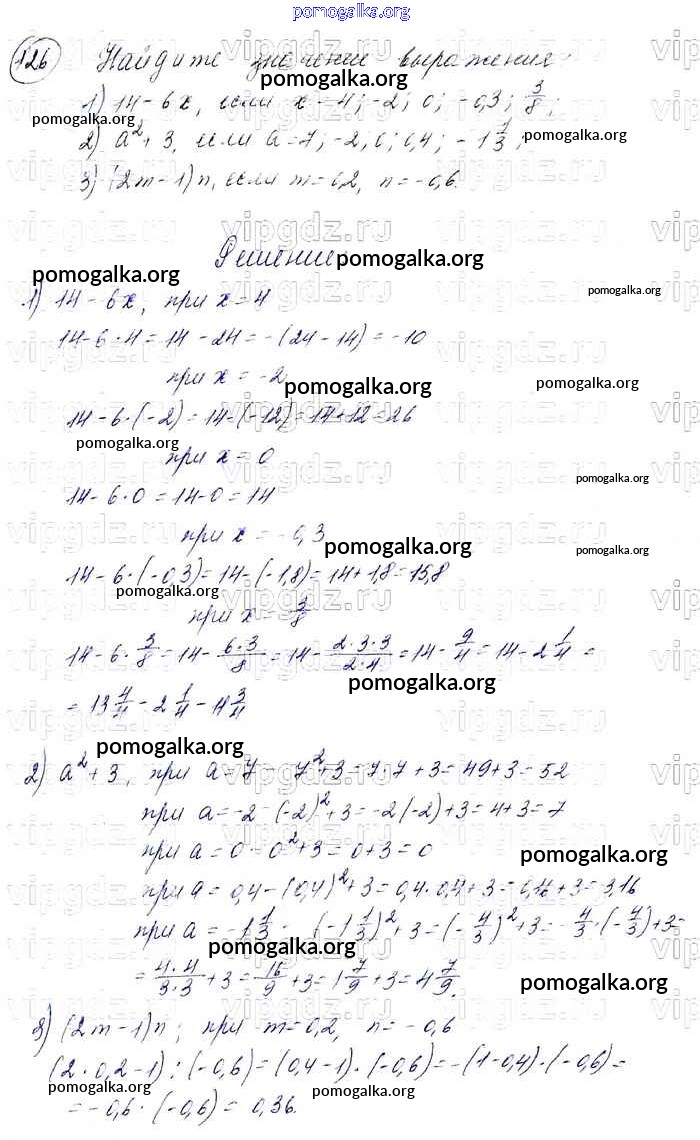 pomogalka.org
126 Найдите значение выражения:
pomogalka.org
1) 14 - 6x, если x = 4; -2; 0; -0,3; 3/8;
pomogalka.org
2) a² + 3, если a = 7; -2; 0; 0,4; -1 1/3;
pomogalka.org
3) (2m - 1)n, если m = 0,2, n = -0,6.
Решение:
pomogalka.org
pomogalka.org
pomogalka.org
1) 14 - 6x, при x = 4
14 - 6 · 4 = 14 - 24 = -(24 - 14) = -10
при x = -2
pomogalka.org
pomogalka.org
14 - 6 · (-2) = 14 - (-12) = 14 + 12 = 26
pomogalka.org
при x = 0
pomogalka.org
14 - 6 · 0 = 14 - 0 = 14
при x = -0,3
pomogalka.org
pomogalka.org
14 - 6 · (-0,3) = 14 - (-1,8) = 14 + 1,8 = 15,8
pomogalka.org
при x = 3/8
14 - 6 · 3/8 = 14 - 6·3/8 = 14 - 2·3·3/2·4 = 14 - 9/4 = 14 - 2 1/4 =
pomogalka.org
= 13 4/4 - 2 1/4 - 11 3/4
pomogalka.org
2) a² + 3, при a = 7 - 7² + 3 = 7 · 7 + 3 = 49 + 3 = 52
при a = -2 - (-2)² + 3 = -2(-2) + 3 = 4 + 3 = 7
при a = 0 - 0² + 3 = 0 + 3 = 0
pomogalka.org
при a = 0,4 - (0,4)² + 3 = 0,4 · 0,4 + 3 = 0,16 + 3 = 3,16
при a = -1 1/3 - (-1 1/3)² + 3 = (- 4/3)² + 3 = - 4/3 · (- 4/3) + 3 =
pomogalka.org
= 4·4/3·3 + 3 = 16/9 + 3 = 1 7/9 + 3 = 4 7/9.
pomogalka.org
3) (2m - 1)n; при m = 0,2, n = -0,6
(2 · 0,2 - 1) : (-0,6) = (0,4 - 1) · (-0,6) = -(1 - 0,4) · (-0,6) =
pomogalka.org
pomogalka.org
= -0,6 · (-0,6) = 0,36.
vipgdz.ru